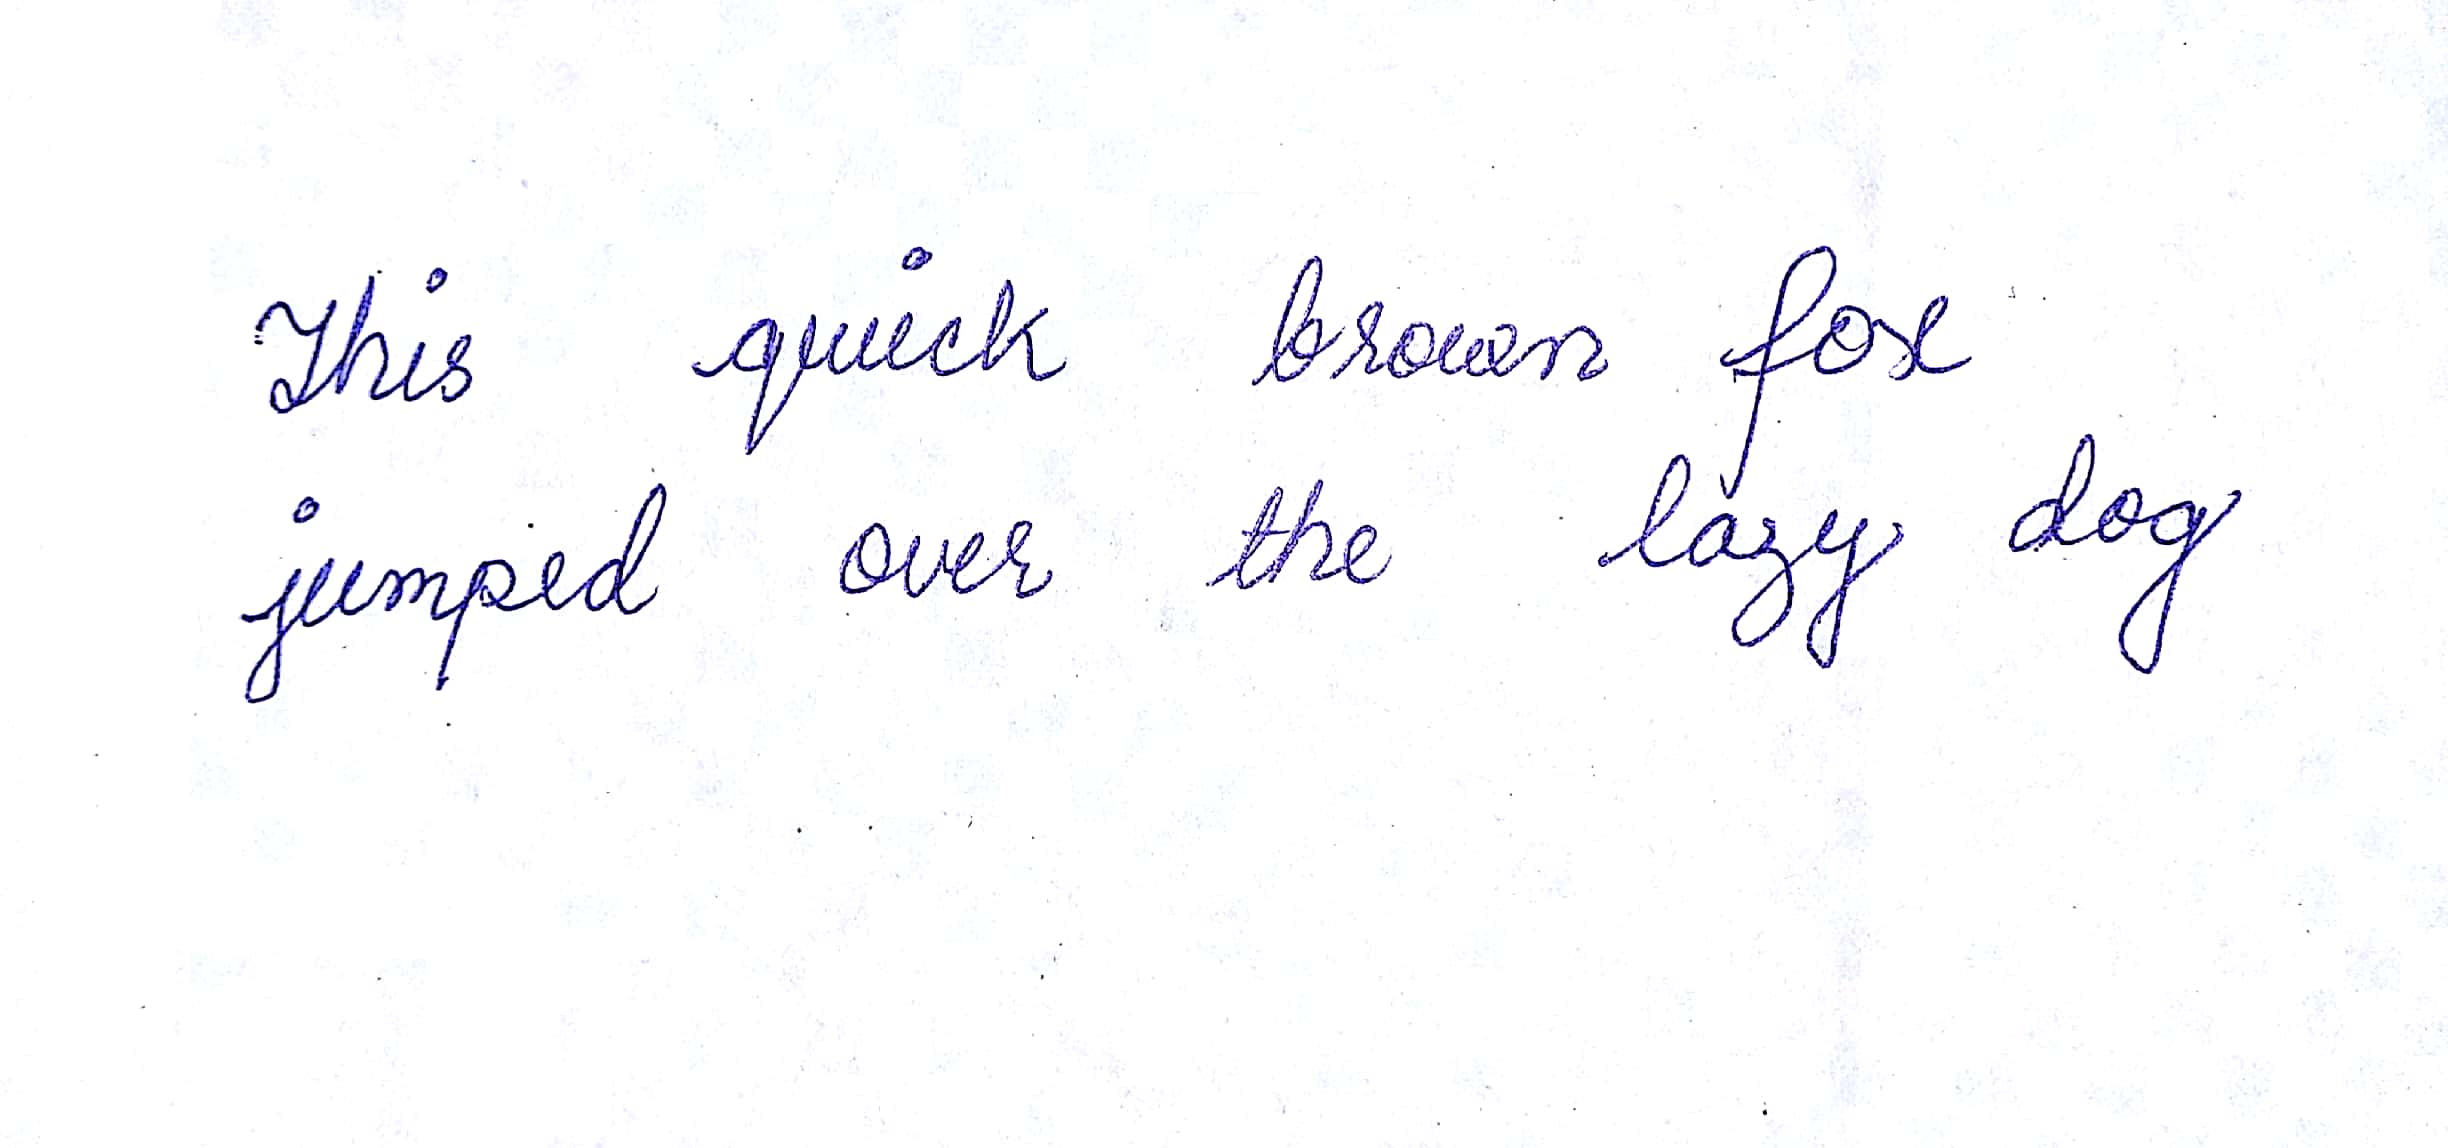 This quick brown fox
jumped over the lazy dog